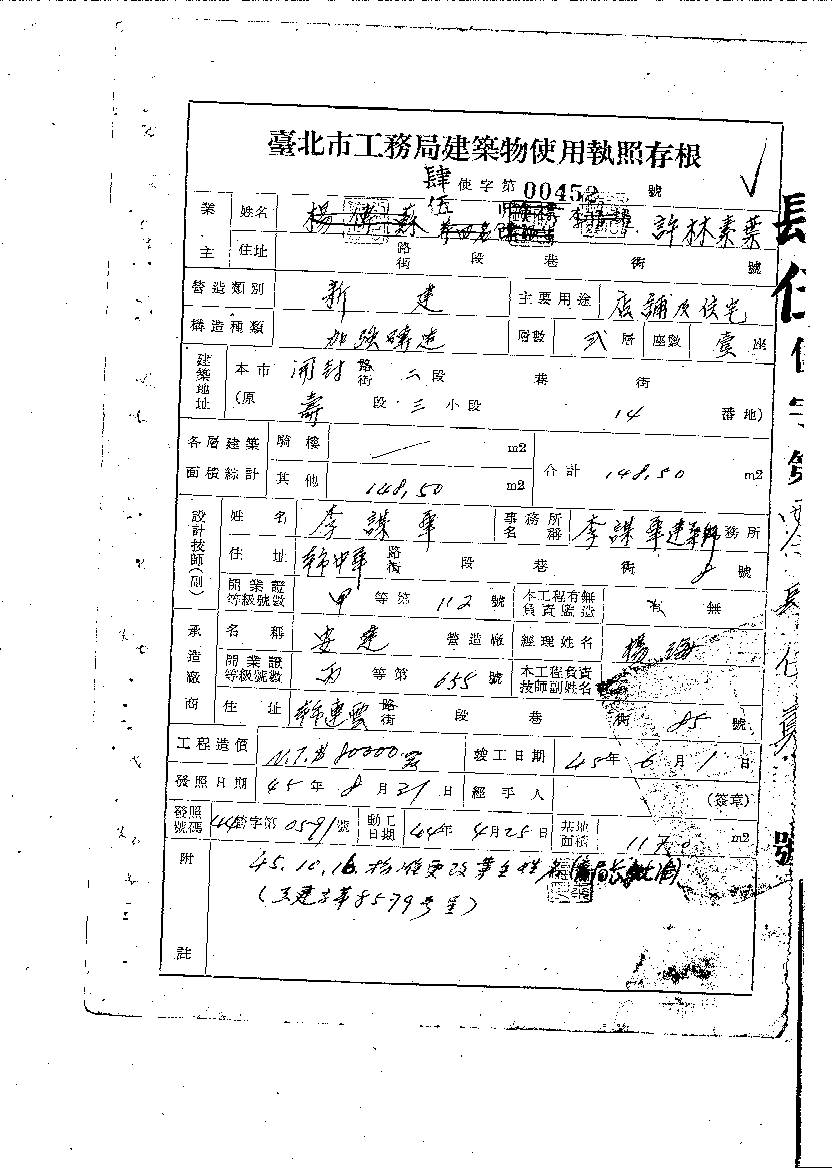 臺北市工務局建築物使用執照存根
肆伍使字第00452號
業主 姓名 楊 森 許林素葉
住址 路街 段 巷 街 號
營造類別 新建 主要用途 店舖及住宅
構造種類 加強磚造 層數 弍層 座數 壹座
建築地址 本市 開封路街 二段 巷 街
(原 壽 段 三 小段 14 番地)
各層建築面積綜計 騎樓 m2 合計 148.50 m2
其他 148.50 m2
設計技師(副) 姓名 李謀華 事務所名稱 李謀華建築師務所
住址 本市中華路街 段 巷 街 8號
開業證等級號數 甲等第112號 本工程有無負責監造 有 無
承造廠商 名稱 安建 營造廠 經理姓名 楊海
開業證等級號數 丙等第655號 本工程負責技師副姓名
住址 本市連雲路街 段 巷 街 85號
工程造價 N.T.$80000 竣工日期 45年6月1日
發照日期 45年8月21日 經手人 (簽章)
發照號碼 44營字第0591號 動工日期 44年4月25日 基地面積 m2
附註 45.10.16.核准更改業主姓名
(工建字第8579號)